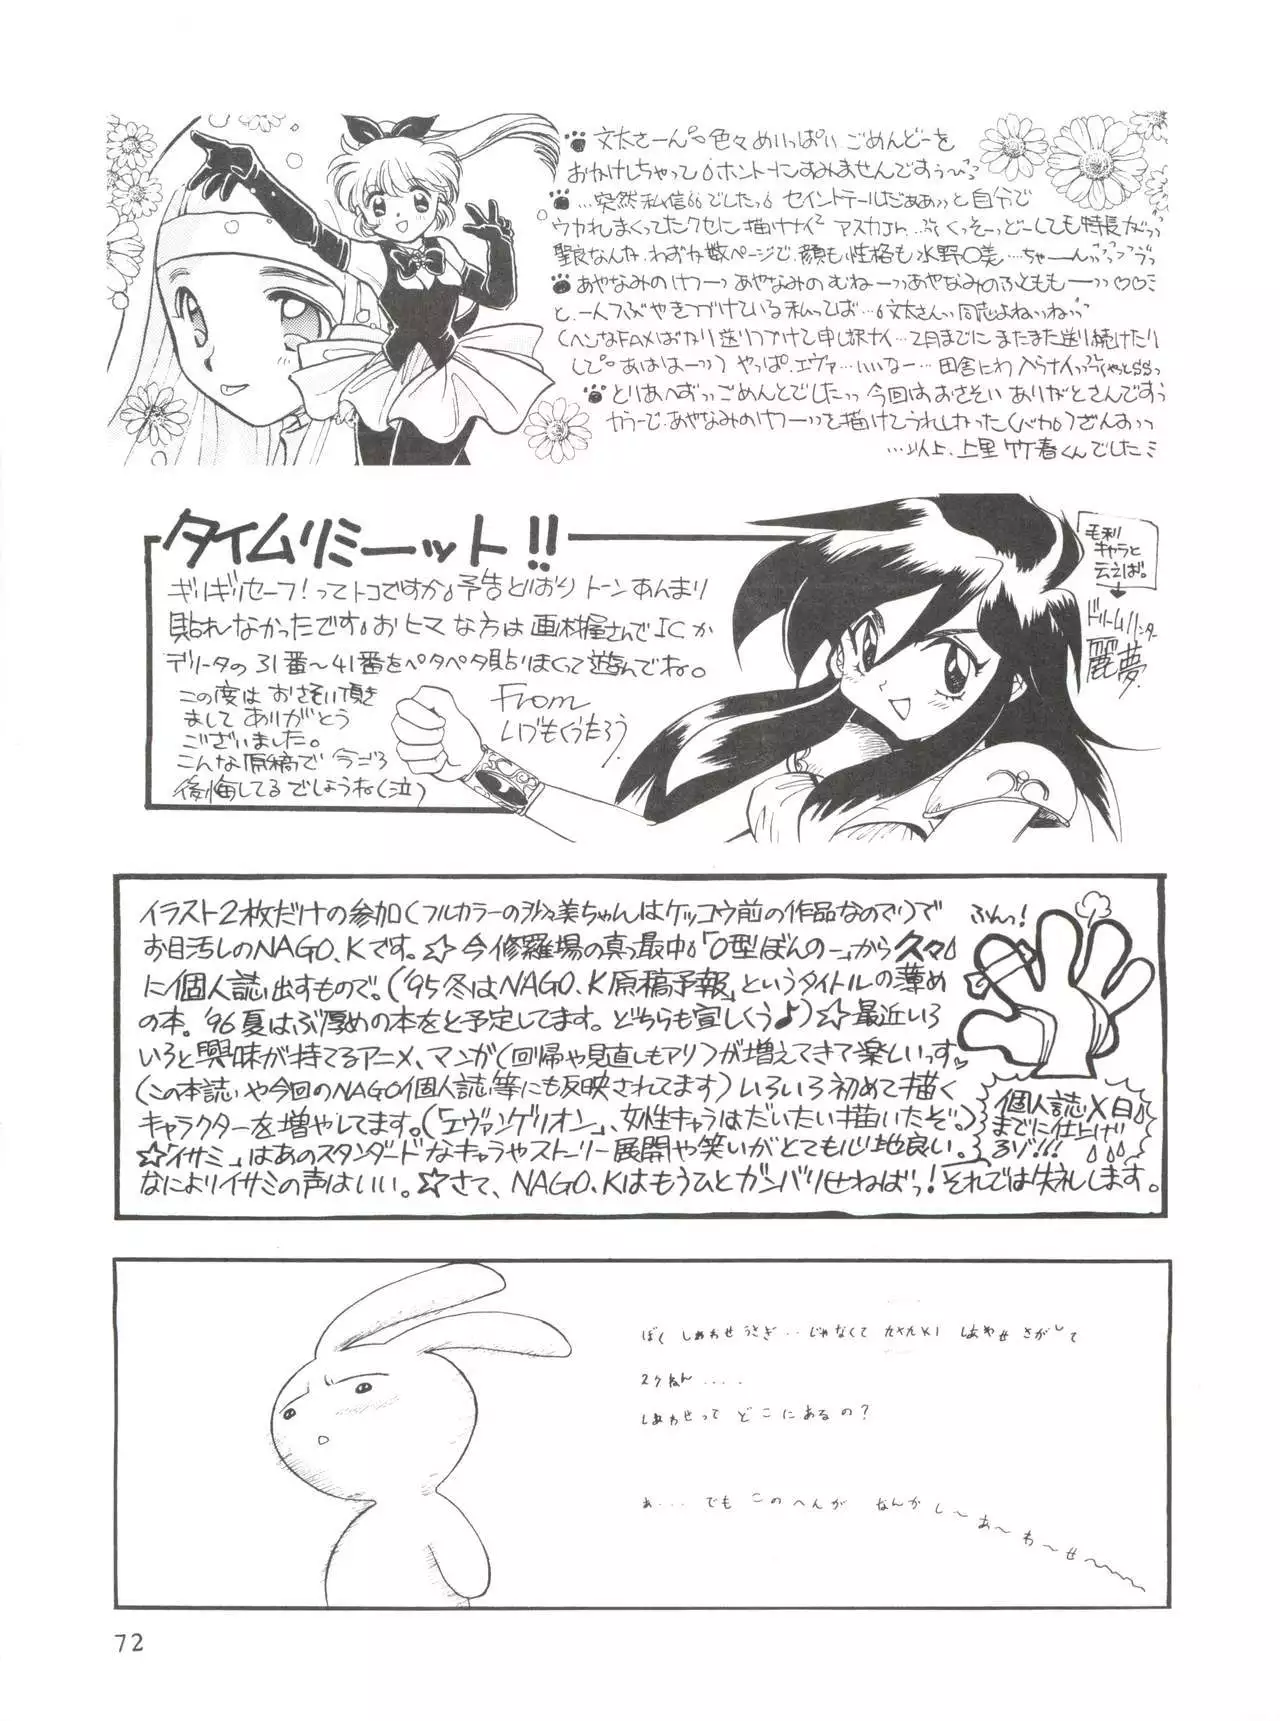 文太さーん色々めいっぱいごめんどーを
おかけしちゃってホントーにすみませんですぅ〜
…突然私信でした。セイントテールだぁぁっっと自分で
ウカれまくってたクセに描けナイ² アスカJr. ぶくくっそーっどーしても特長がっっ
聖良なんか、わずか数ページで、顔も性格も水野○美…ちゃーんっ
あやなみのけつーっっあやなみのむねーっっあやなみのふとももーっっ♡♡ミ
と、一人つぶやきつづけている私ってば…文太さんっ同志よねっねっっ
(ヘンなFAXばかり送りつけて申し訳ナイ…2月までにまたまた送り続けたり
して。あははーっっ) やっぱ、エヴァ…いいなー…田舎にわ入らナイっっ
とりあへずっっごめんとでしたっっ 今回はおさそいありがとさんですぅ
あやなみのけつーっっを描けてうれしかった(バカ)ざんおっっ
…以上、上里竹春くんでしたミ
タイムリミーット!!
ギリギリセーフ!ってトコですか。予告どおりトーンあんまり
貼れなかったです。おヒマな方は画材屋さんでICか
デリータの31番〜41番をペタペタ貼りまくって遊んでね。
この度はおさそい頂き
ましてありがとう
ございました。
こんな原稿で今ごろ
後悔してるでしょうね(泣)
From
いづもくうたろう
毛利
キャラと
云えば。
ドリームハンター
麗夢
イラスト2枚だけの参加(フルカラーの砂沙美ちゃんはケッコウ前の作品なので)で
お目汚しのNAGO.Kです。☆今修羅場の真っ最中。「O型ぼんのー」から久々
に個人誌出すもので。('95冬は「NAGO.K原稿予報」というタイトルの薄め
の本。'96夏はぶ厚めの本をと予定してます。どちらも宜しくう♪)☆最近いろ
いろと興味が持てるアニメ、マンガ(回帰や見直しもアリ)が増えてきて楽しいっす
(この本誌や今回のNAGO個人誌等にも反映されてます)いろいろ初めて描く
キャラクターを増やしてます。(「エヴァンゲリオン」、女性キャラはだいたい描いたぞ。)
☆「イサミ」はあのスタンダードなキャラやストーリー展開や笑いがとても心地良い。
なによりイサミの声はいい。☆さて、NAGO.Kはもうひとガンバリせねばっ!それでは失礼します。
ふんっ!
個人誌X日
までに仕上げ
るゾ!!!
ぼく しあわせうさぎ‥じゃなくて たさたさ! しあわせ さがして
27ねん‥‥
しあわせって どこにあるの?
あ‥‥でも このへんが なんか し〜あ〜わ〜せ〜〜
72